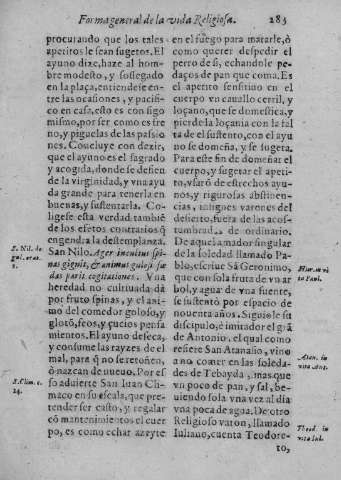 Forma general de la vida Religiosa. 285
procurando que los tales
apetitos le sean sugetos. El
ayuno dize, haze al hom-
bre modesto, y sossegado
en la plaça, entiendese en-
tre las ocasiones, y pacifi-
co en casa, esto es con sigo
mismo, por ser como es fre
no, y piguelas de las passio
nes. Concluye con dezir,
que el ayuno es el sagrado
y acogida, donde se defien
de la virginidad, y vna ayu
da grande para tenerla en
buenas, y sustentarla. Co-
ligese esta verdad tambié
de los efetos contrarios q̃
engendra la destemplança.
San Nilo. Ager incultus spi-
nas gignit, & animus gulosi fœ
das parit cogitationes. Vna
heredad no cultiuada dá
por fruto spinas, y el ani-
mo del comedor goloso, y
glotõ, feos, y suzios pensa
mientos. El ayuno deseca,
y consume las rayzes de el
mal, para q̃ no se retoñen,
ò nazcan de nueuo. Por es
so aduierte San Iuan Cli-
maco en su escala, que pre-
tender ser casto, y regalar
có mantenimientos el cuer
po, es como echar azeyte
S. Nil. de
gul. orat.
2.
S. Clim. c.
14.
en el fuego para matarle, ò
como querer despedir el
perro de si, echandole pe-
daços de pan que coma. Es
el apetito sensitiuo en el
cuerpo vn cauallo cerril, y
loçano, que se domestica, y
pierde la loçania con la fal
ta del sustento, con el ayu
no se doma, y se sugeta.
Para este fin de domeñar el
cuerpo, y sugetar el apeti-
to, vsarõ de estrechos ayu-
nos, y rigurosas abstinen-
cias, insignes varones del
desierto, fuera de las acos-
tumbradas de ordinario.
De aquel amador singular
de la soledad llamado Pa-
blo, escriue Sã Geronimo,
que con sola fruta de vn ar
bol, y agua de vna fuente,
se sustentò por espacio de
nouenta años. Siguiole su
discipulo, è imitador el grã
de Antonio, el qual como
refiere San Atanasio, vino
a no comer en las soleda-
des de Tebayda, mas que
vn poco de pan, y sal, be-
uiendo sola vna vez al dia
vna poca de agua. De otro
Religioso varon, llamado
Iuliano, cuenta Teodore-
to,
Hier. in vi
ta Paul.
Atan. in
vita Ant.
Theod. in
vita Iul.